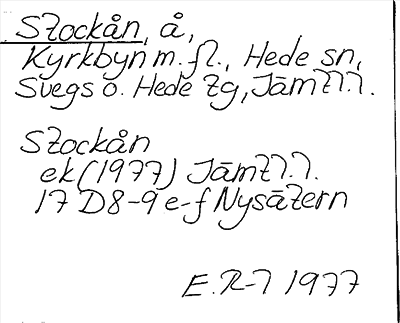 Stockån, å,
Kyrkbyn m. fl., Hede sn,
Svegs o. Hede tg, Jämtl.l.
Stockån
ek (1977) Jämtl.l.
17 D8-9 e-f Nysätern
E.R-l 1977